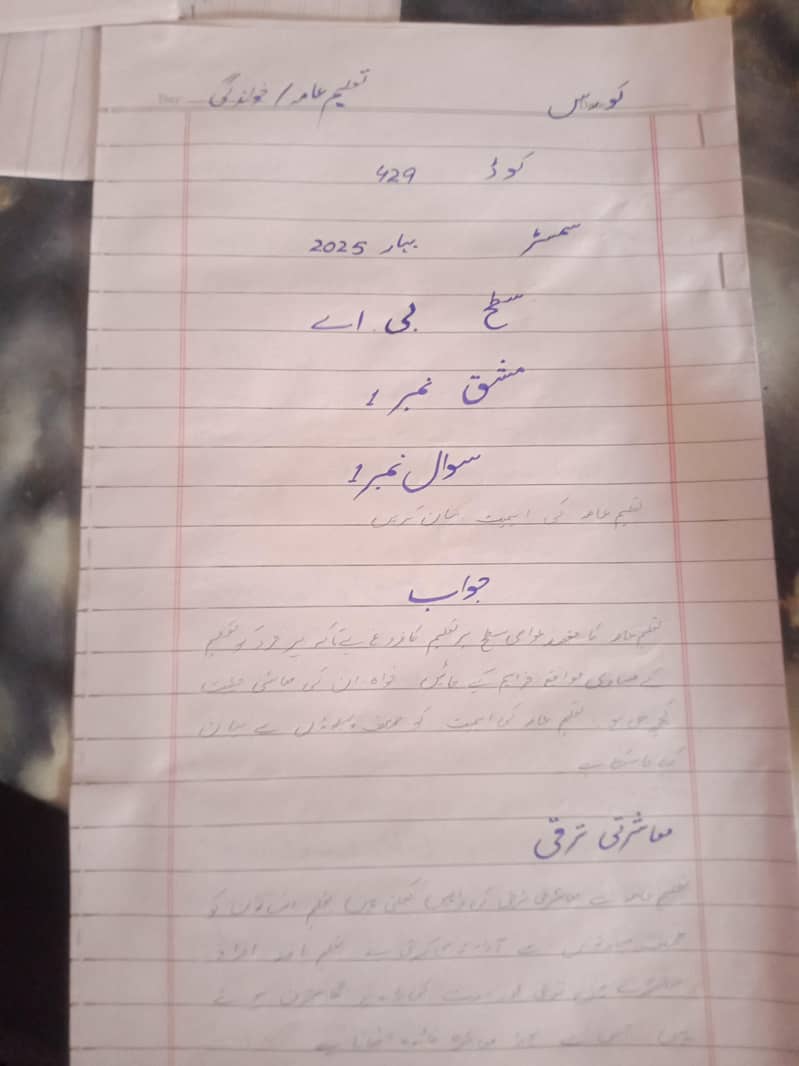 کورس تعلیم عامہ / خواندگی
کوڈ 429
سمسٹر بہار 2025
سطح بی اے
مشق نمبر 1
سوال نمبر 1
تعلیم عامہ کی اہمیت بیان کریں
جواب
تعلیم عامہ کا مقصد عوامی سطح پر تعلیم کا فروغ ہے تاکہ ہر فرد کو تعلیم
کے مساوی مواقع فراہم کیے جائیں خواہ ان کی معاشی حیثیت
کچھ بھی ہو۔ تعلیم عامہ کی اہمیت کو مختلف پہلوؤں سے بیان
کیا جا سکتا ہے
معاشرتی ترقی
تعلیم عامہ سے معاشرتی ترقی کی راہیں کھلتی ہیں تعلیم انسانوں کو
سے تعلیم یافتہ افراد
معاشرے میں ترقی